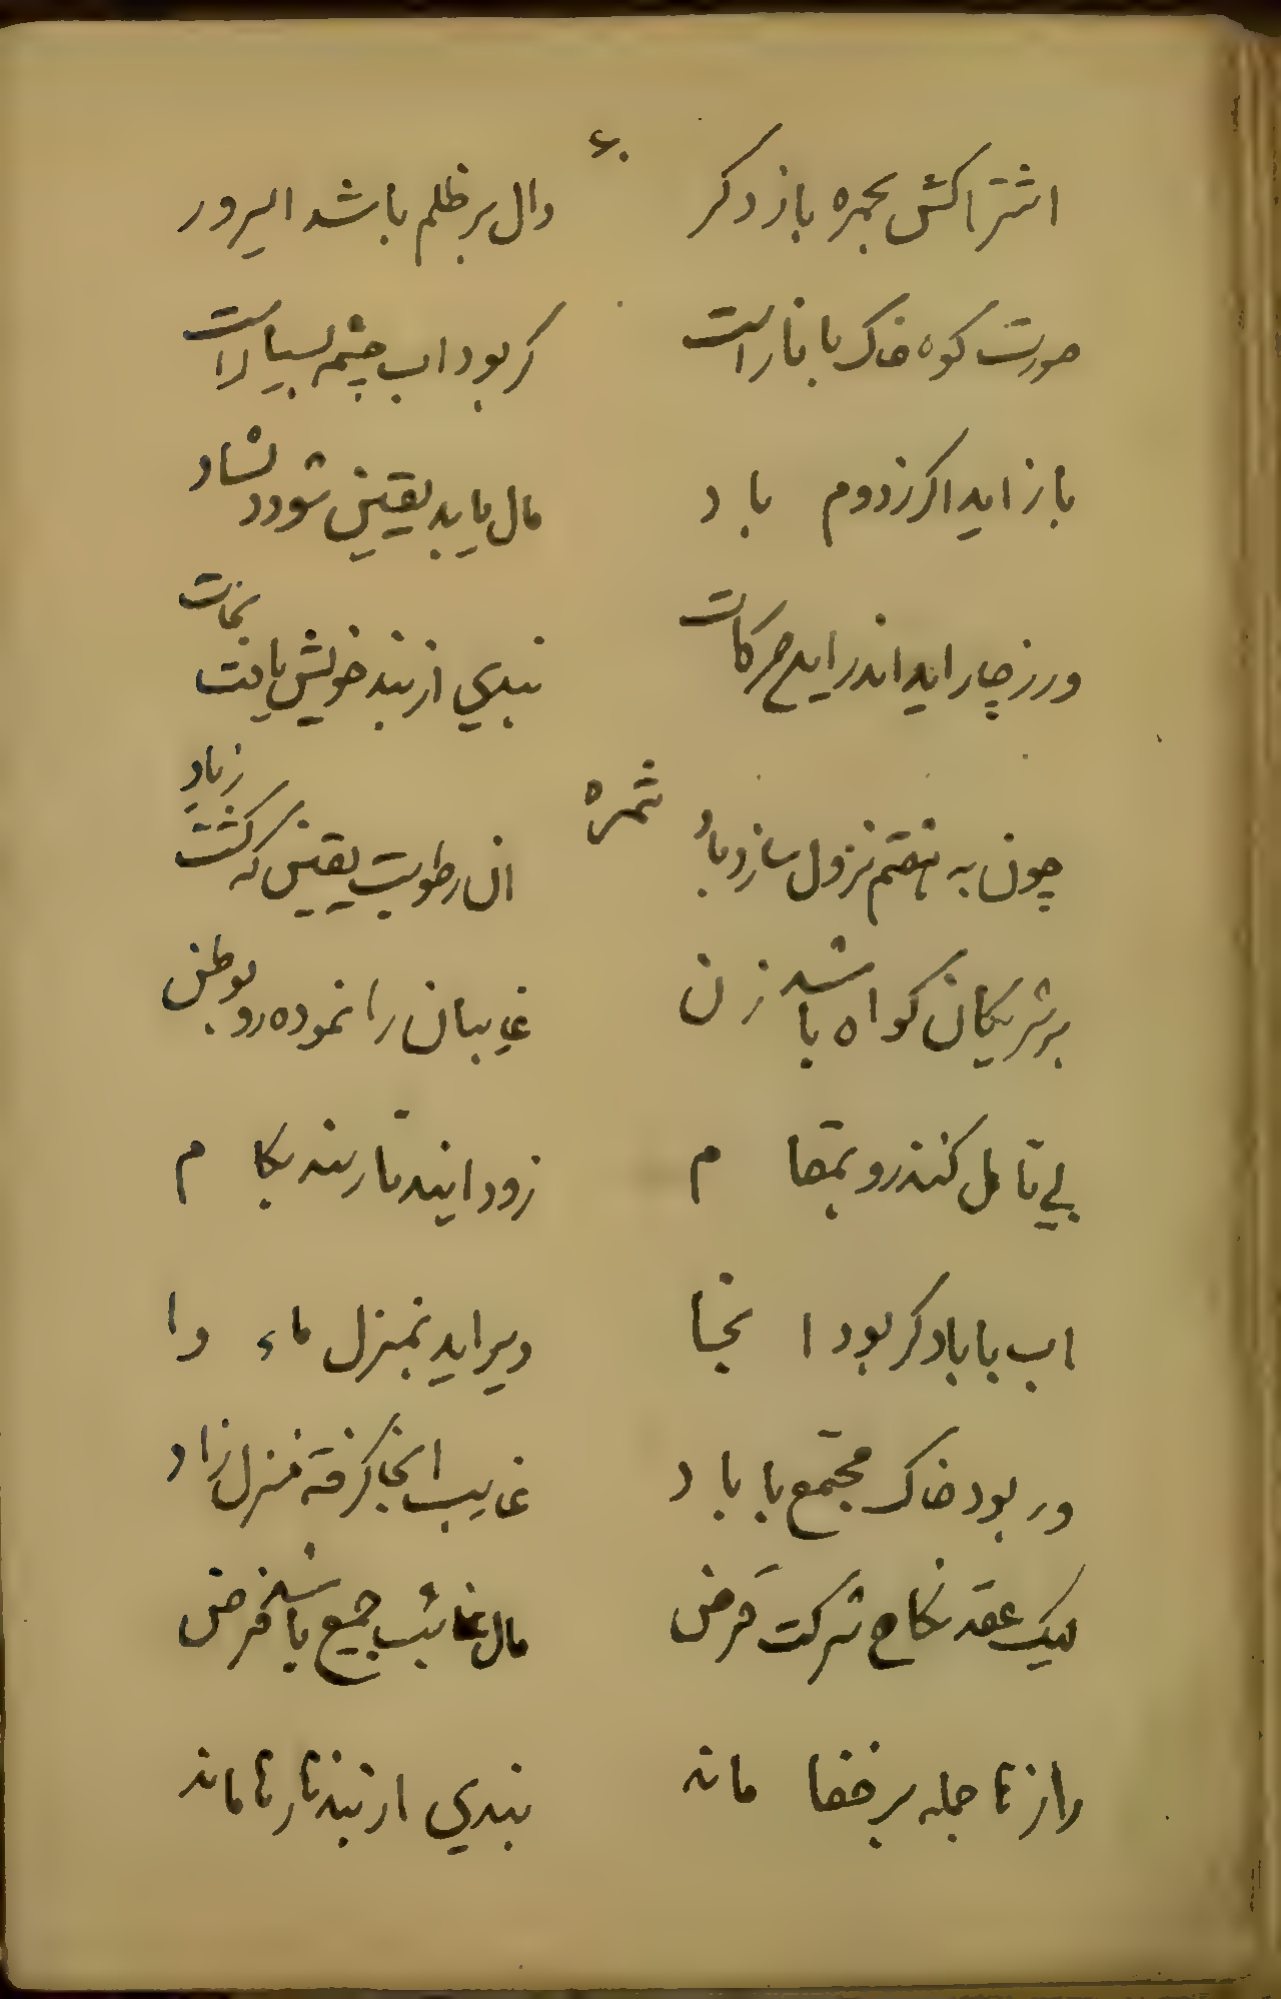 ۶۰
اشتراکش بحمره باز دکر دال بر ظلم باشد ای سرور
صورت کوه خاک با نار است کر بود اب چشمه بسیار است
باز اید اکر زدوم باد مال یابد یقین شود دلشاد
ور ز چار اید اندر این حرکات بندی از بند خویش یافت نجات
ثمره
چون به هفتم نزول سازد باد ان رطوبت یقین که کشت زیاد
بر شریکان کواه باشد زن غایبان را نموده رو بوطن
بی تامل کنند رو بمقام زود ایند تا رسند بکام
اب با باد کر بود انجا دیر اید بمنزل ماوا
ور بود خاک مجتمع با باد غایب انجا کرفته منزل زاد
لیک عقد نکاح شرکت قرض مال غائب جمیع باشد فرض
راز تا جمله بر خفا ماند بندی از بند نا رها ماند